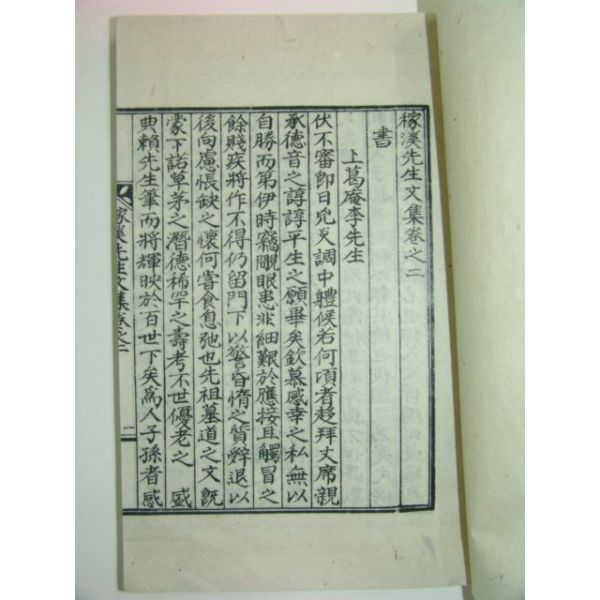 稼溪先生文集卷之二
書
上葛庵李先生
伏不審即日兇夾調中軆候若何頃者趍拜丈席親
承德音之諄諄平生之願畢矣欽慕感幸之私無以
自勝而第伊時竊覸眼患非細艱於應接且觸冒之
餘賤疾將作不得仍留門下以警昏惰之質辭退以
後向慮悵缺之懷何嘗食息弛也先祖墓道之文旣
蒙下諾草茅之潛德稀罕之壽考不世優老之 盛
典賴先生筆而將輝映於百世下矣爲人子孫者感
稼溪先生文集卷之二